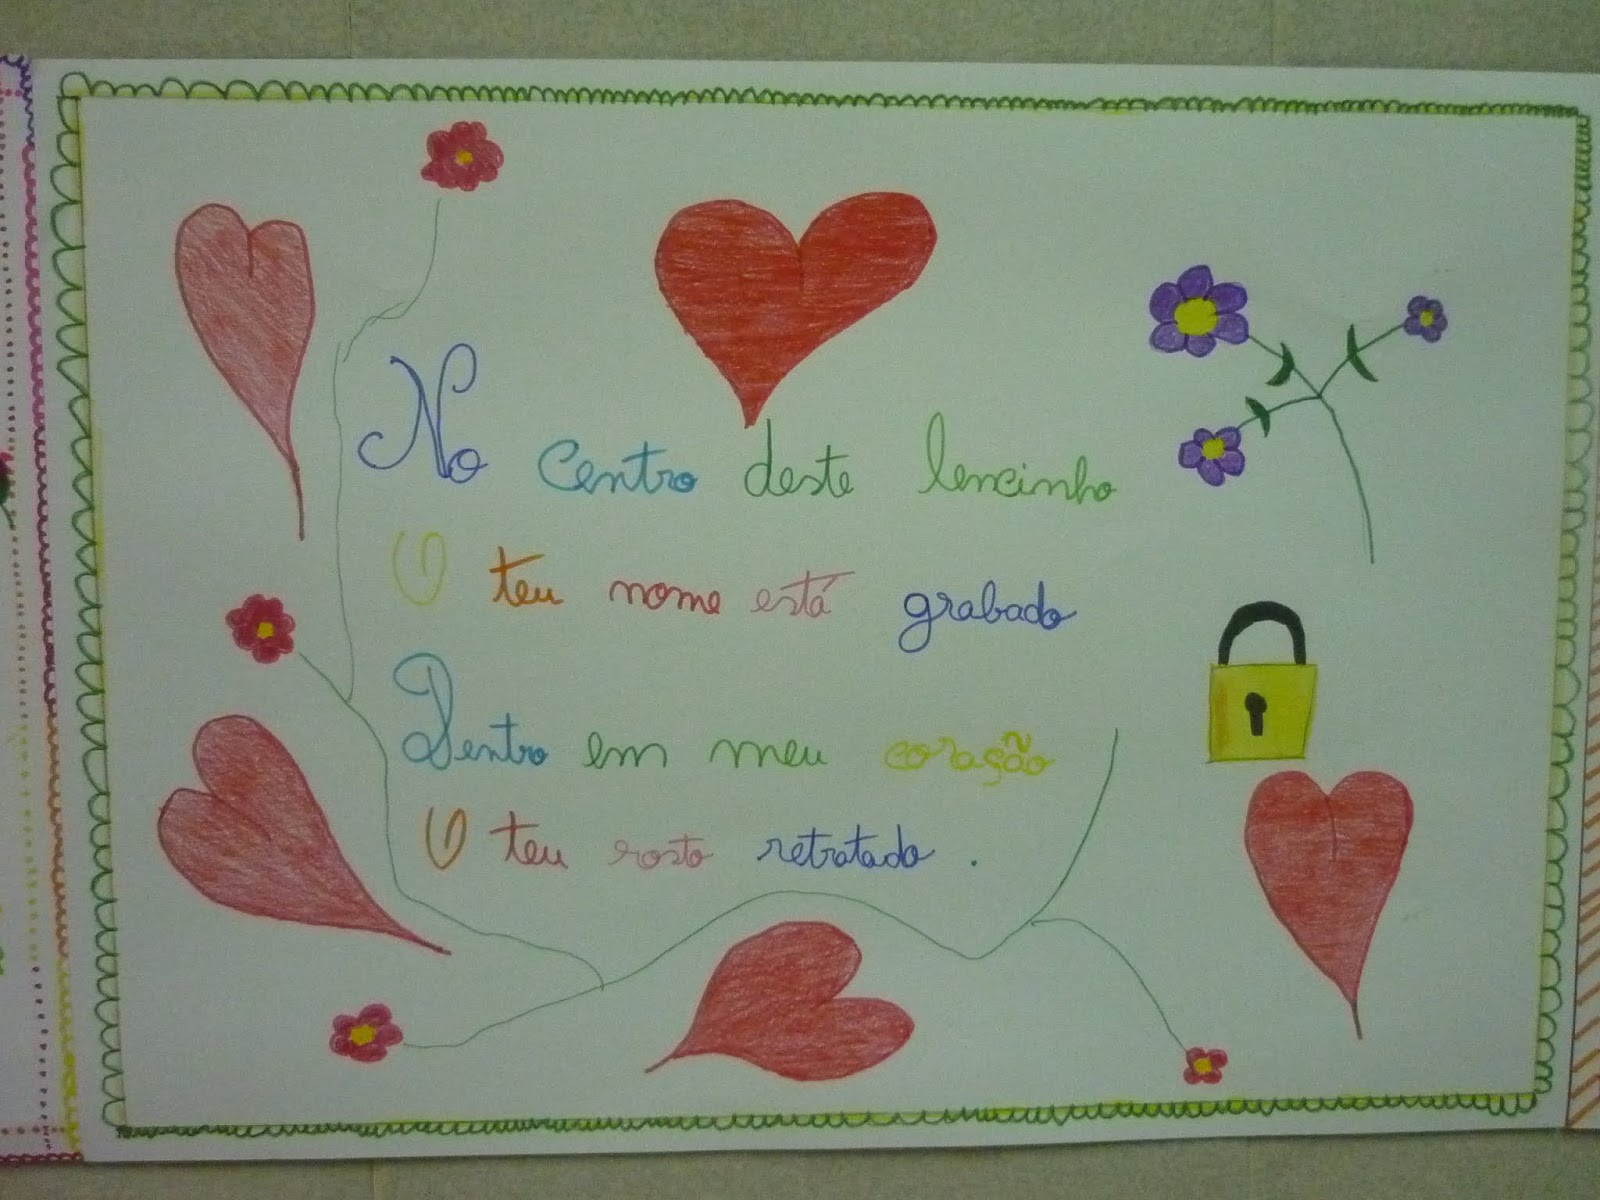 No centro deste lencinho
O teu nome está grabado
Dentro em meu coração
O teu rosto retratado.